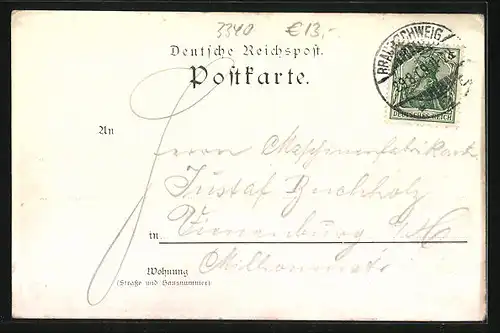 3340 €13,-
BRAUNSCHWEIG
Deutsche Reichspost.
Postkarte.
DEUTSCHES REICH
An
Herrn Maschinenfabrikant
Gustaf Buchholz
in Vienenburg a/H
Wohnung
(Straße und Hausnummer)